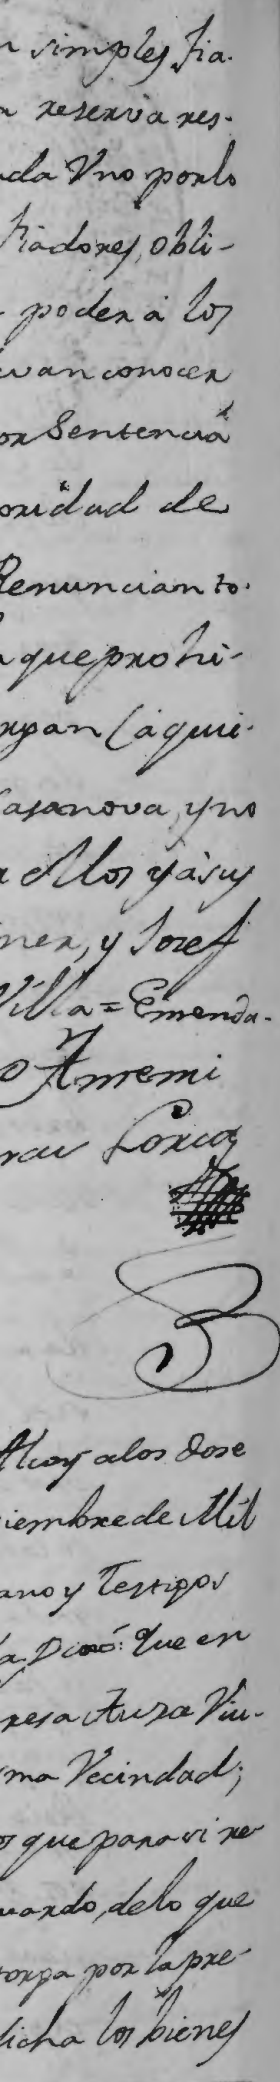 n simples fia-
a reserva res-
ada Uno porlo
fiadores, obli-
poder a los
evan conocer
por Sentencia
oridad de
Renuncian to-
a que prohi-
rgan (aqui-
Casanova, y no
a ellos y à sus
ner, y Josef
Villa = Emenda-
Antemi
Lorca
Alcoy a los dose
iembre de Mil
ano y Testigos
Dixó: Que en
resa Auza Viu-
ma Vecindad;
os que para si re-
uardo, de lo que
torga por la pre-
dicha los bienes